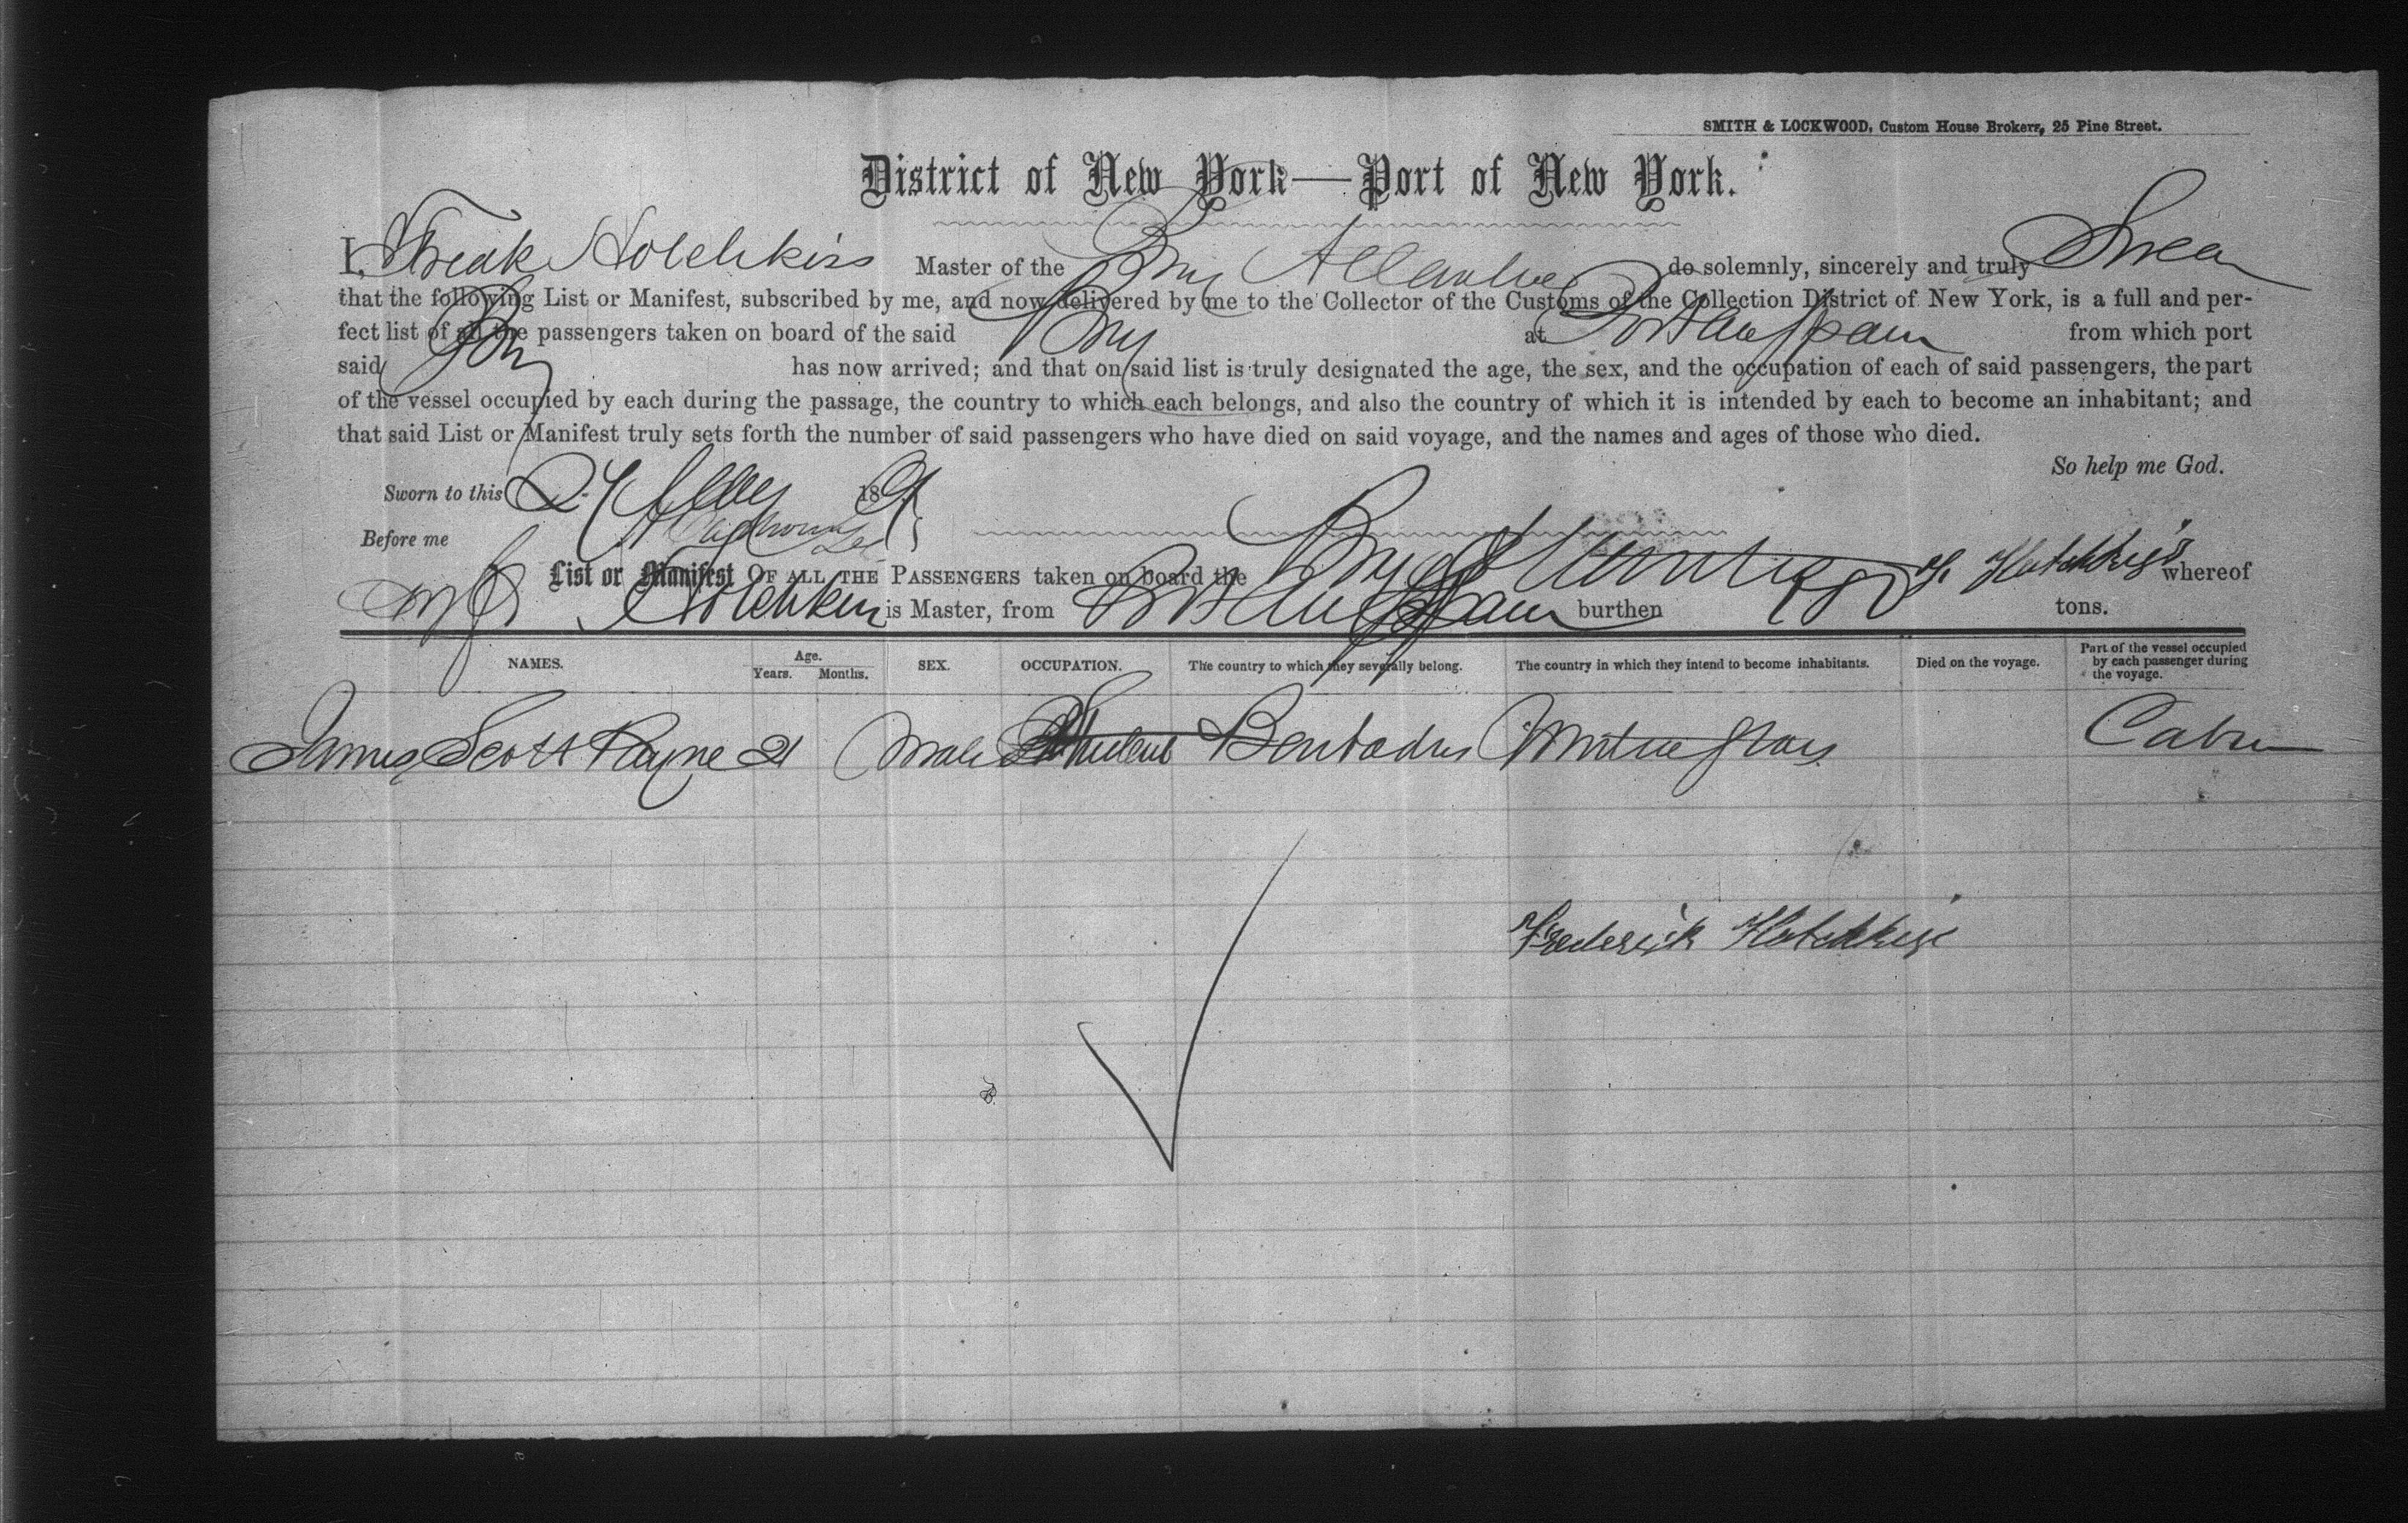 SMITH & LOCKWOOD, Custom House Brokers, 25 Pine Street.
District of New York—Port of New York.
I, Fredk Hotchkiss Master of the Brig do solemnly, sincerely and truly Swear
that the following List or Manifest, subscribed by me, and now delivered by me to the Collector of the Customs of the Collection District of New York, is a full and per-
fect list of all the passengers taken on board of the said Brig at Port au Spain from which port
said Brig has now arrived; and that on said list is truly designated the age, the sex, and the occupation of each of said passengers, the part
of the vessel occupied by each during the passage, the country to which each belongs, and also the country of which it is intended by each to become an inhabitant; and
that said List or Manifest truly sets forth the number of said passengers who have died on said voyage, and the names and ages of those who died.
So help me God.
Sworn to this 27 18
Before me
List or Manifest OF ALL THE PASSENGERS taken on board the Brig F. Hotchkiss whereof
Hotchkiss is Master, from Port au Spain burthen tons.
NAMES. Age. Years. Months. SEX. OCCUPATION. The country to which they severally belong. The country in which they intend to become inhabitants. Died on the voyage. Part of the vessel occupied by each passenger during the voyage.
James Scott Payne 21 Male Student Cabin
Frederick Hotchkiss